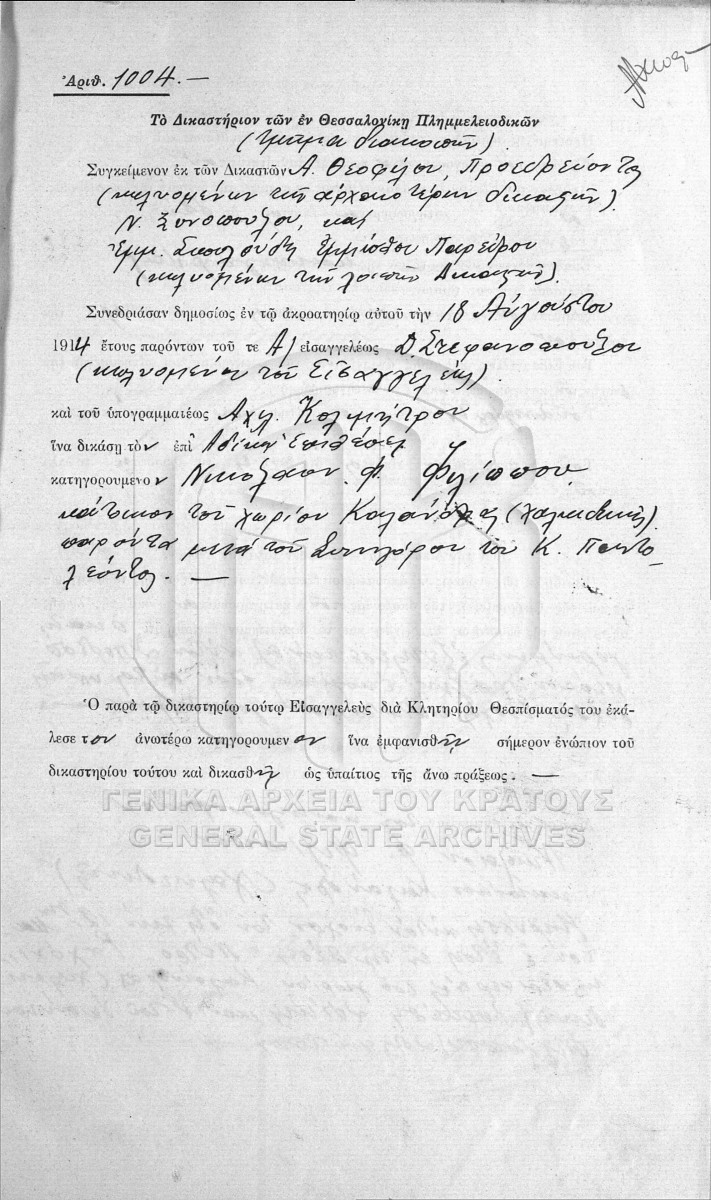 Ἀριθ. 1004.—
Τὸ Δικαστήριον τῶν ἐν Θεσσαλονίκῃ Πλημμελειοδικῶν
(τμῆμα διακοπῶν)
Συγκείμενον ἐκ τῶν Δικαστῶν Α. Θεοφίλου, Προεδρεύοντος
(κωλυομένων τῶν ἀρχαιοτέρων δικαστῶν)
Ν. Ξυνοπούλου, καὶ
Ἐμμ. Σπουλούδη Ἐμμίσθου Παρέδρου
(κωλυομένων τῶν λοιπῶν Δικαστῶν).
Συνεδριάσαν δημοσίως ἐν τῷ ἀκροατηρίῳ αὐτοῦ τὴν 18 Αὐγούστου
1914 ἔτους παρόντων τοῦ τε Α) εἰσαγγελέως Δ. Στεφανοπούλου
(κωλυομένου τοῦ Εἰσαγγελέως)
καὶ τοῦ ὑπογραμματέως Αχλ. Κολιμήτρου
ἵνα δικάσῃ τὸν ἐπὶ Ἀδίκῳ Ἐπιθέσει
κατηγορουμενον Νικόλαον Φ. Φιλίππου
κάτοικον τοῦ χωρίου Καλάνδρας (Χαλκιδικῆς)
παρόντα μετὰ τοῦ Συνηγόρου του Κ. Παντο
λέοντος. —
Ὁ παρὰ τῷ δικαστηρίῳ τούτῳ Εἰσαγγελεὺς διὰ Κλητηρίου Θεσπίσματός του ἐκά-
λεσε τον ἀνωτέρω κατηγορουμενον ἵνα ἐμφανισθῇ σήμερον ἐνώπιον τοῦ
δικαστηρίου τούτου καὶ δικασθῇ ὡς ὑπαίτιος τῆς ἄνω πράξεως. —
ΓΕΝΙΚΑ ΑΡΧΕΙΑ ΤΟΥ ΚΡΑΤΟΥΣ
GENERAL STATE ARCHIVES